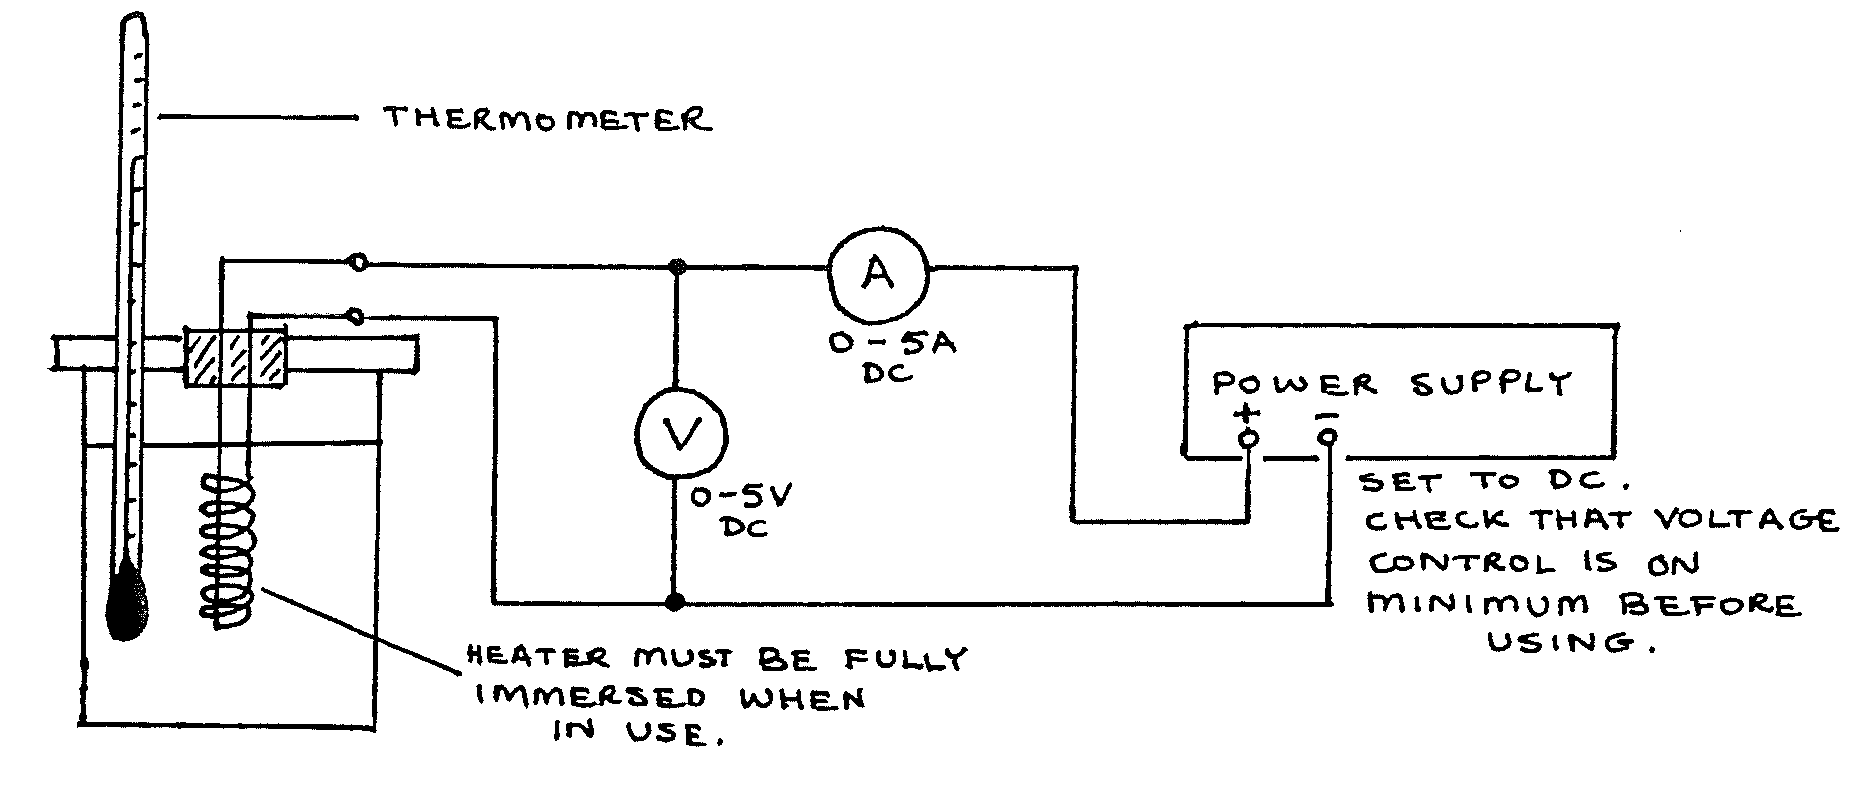 THERMOMETER
A
0-5A
DC
POWER SUPPLY
+ -
V
0-5V
DC
SET TO DC.
CHECK THAT VOLTAGE
CONTROL IS ON
MINIMUM BEFORE
USING.
HEATER MUST BE FULLY
IMMERSED WHEN
IN USE.